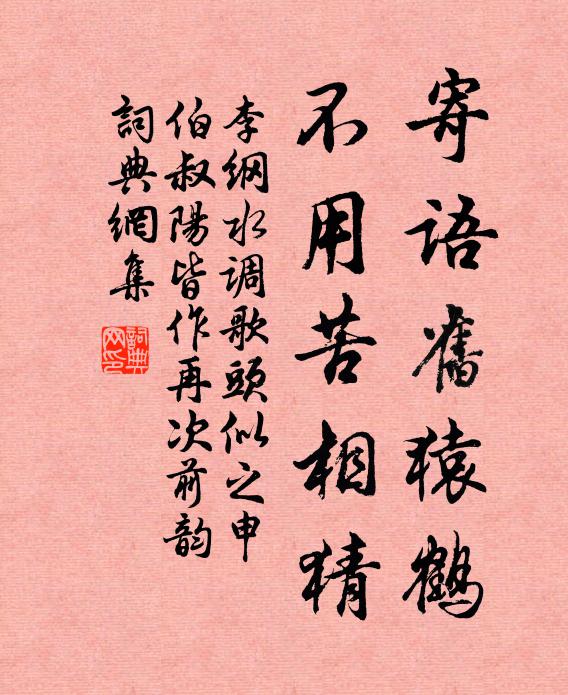 寄语舊猿鶴
不用苦相猜
李纲水调歌頭似之申
伯叔陽皆作再次前韵
詞典網集
詞典网印